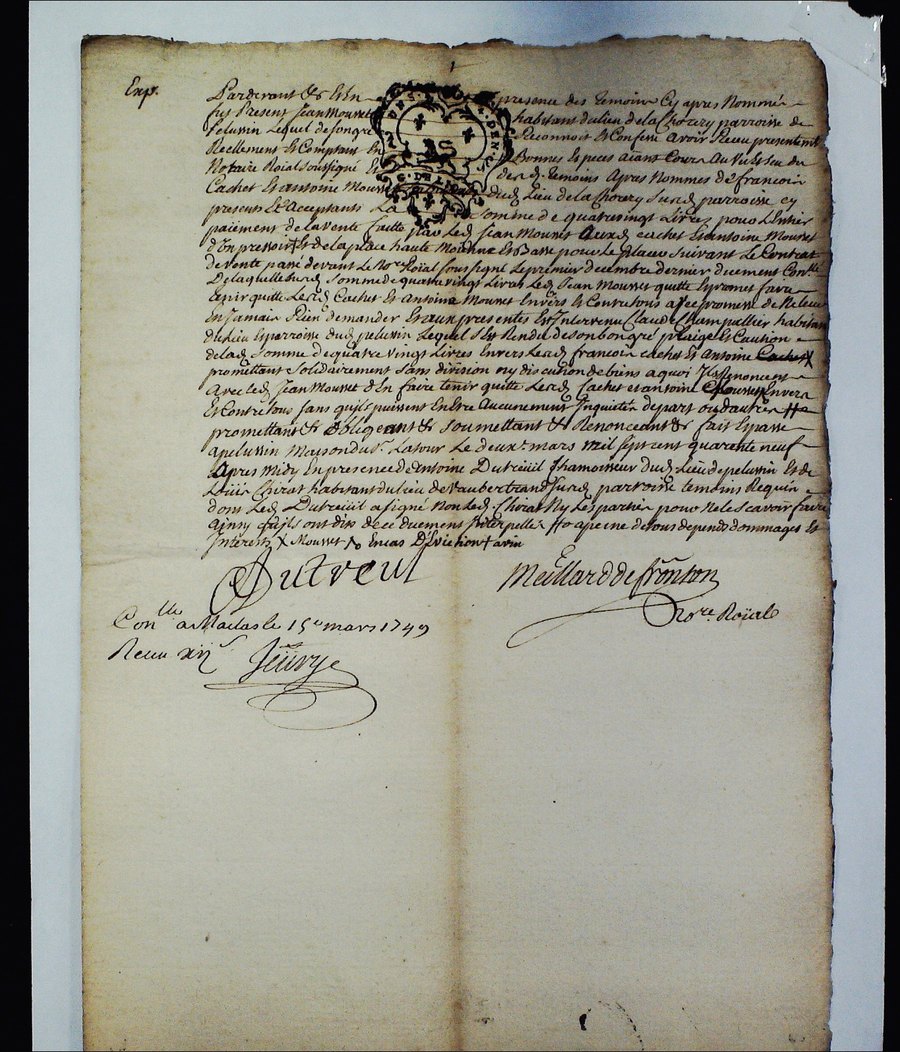 1
Exp.
Pardevant &c Et En presence des temoins Cy apres Nommé
fut Present Jean Mouret habitant du lieu de la Chorery parroisse de
Pelussin Lequel de son gre Reconnoit Et Confesse avoir Receu presentemt
Reellement Et Comptant En Bonnes Especes aiant Cours Au Veu Et Sceu du
Notaire Roial soussigné Et des d. temoins Apres Nommes de francois
Cachet Et antoine Mouret habitants dud. Lieu de la Chorery Susd. parroisse cy
presents Et Acceptants La Somme de quatrevingt Livres pour L'Entier
paiement de la vente faitte par Led. Jean Mouret Auxd. cachet Et antoine Mouret
d'Un pressoir Et de la place haute Moienne Et Basse pour le placer Suivant Le Contrat
de Vente passé devant Le Nore Roial soussigné Le premier decembre dernier deument Conllé
De laquelle susd. Somme de quatrevingt Livres Led. Jean Mouret quitte Et promet faire
Tenir quitte Lesd. Cachet Et Antoine Mouret Envers Et Contre tous avec promesse de Ne leur
En Jamais Rien demander Et aux presentes Est Intervenu Claude Champallier habitant
du Lieu Et parroisse dud. pelussin Lequel S'est Rendu de son bon gré plaige Et Caution
de lad. Somme de quatre vingt Livres Envers Lesd. francois cachet Et Antoine Cachet X
promettant Solidairement Sans division ny discution de biens a quoy Ils Renoncent
Avec Led. Jean Mouret d'En faire tenir quitte Lesd. Cachet et antoine Mouret Envers
Et Contre tous sans qu'ils puissent En Etre Aucunement Inquietés de part ou d'autre #
promettant &c obligeant &c Soumettant &c Renonceant &c fait Et passé
a pelussin Maison du Sr. Latour Le deuxe. mars Mil Sept cent quarante neuf
Apres Midy En presence de Antoine Dutreuil Chamoisseur dud. Lieu de pelussin Et de
Louis Chirat habitant du lieu de Vaubertrand Susd. parroisse temoins Requis
dont Led. Dutreuil a signé Non Led. Chirat Ny Les parties pour Ne le Scavoir faire
Ainsy qu'ils ont dit de ce deuement Interpellés # o apeine de tous depends dommages Et
Interets X Mouret % En cas D'Eviction
Dutreul
Meillard de fronton
Nore. Roïal
Conlle a Maclas le 15e mars 1749
Receu xijs